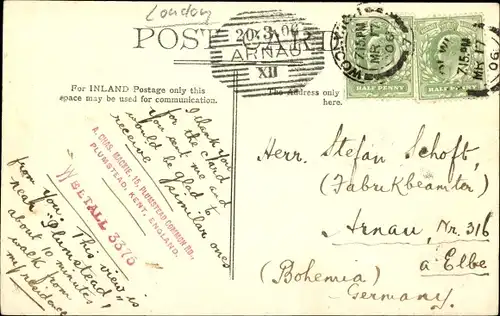 London
POST CARD
20.3.06
ARNAU
XII
WOOLWICH
7.15 PM
MR 17
06
7.15 PM
MR 17
06
HALF PENNY
HALF PENNY
For INLAND Postage only this
space may be used for communication.
The Address only
here.
I thank you
for the card
you sent me and
would be glad to
receive similar ones
from you. This view is
near "Plumstead",
about 10 minutes
walk from
my residence
A. CHAS. MACKIE, 15, PLUMSTEAD COMMON RD.,
PLUMSTEAD, KENT, ENGLAND.
WELTALL 3375
Herr. Stefan Schoft,
(Fabrikbeamter)
Arnau, Nr. 316
a Elbe
(Bohemia)
Germany.